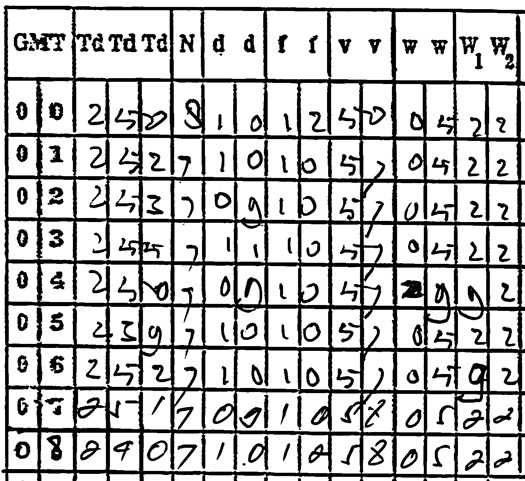 GMT Td Td Td N d d f f v v w w W1 W2
0 0 2 5 0 8 1 0 1 2 5 0 0 5 2 2
0 1 2 5 2 7 1 0 1 0 5 7 0 5 2 2
0 2 2 5 3 7 0 9 1 0 5 7 0 5 2 2
0 3 2 5 5 7 1 1 1 0 5 7 0 5 2 2
0 4 2 5 0 7 0 9 1 0 5 7 9 9 2
0 5 2 3 9 7 1 0 1 0 5 7 0 5 2 2
0 6 2 5 2 7 1 0 1 0 5 7 0 5 9 2
0 7 2 5 1 7 0 9 1 0 5 8 0 5 2 2
0 8 2 4 0 7 1 0 1 2 5 8 0 5 2 2